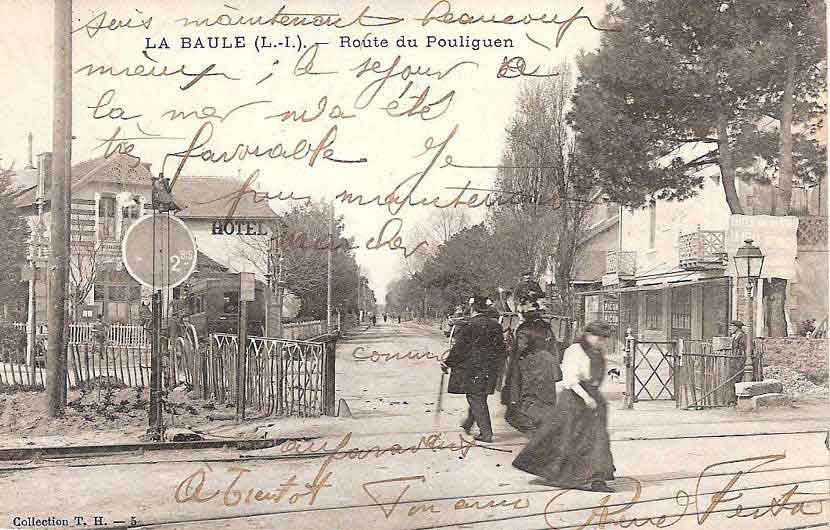 suis maintenant beaucoup
LA BAULE (L.-I.). — Route du Pouliguen
mieux ; le séjour à
la mer m'a été
très favorable Je
puis maintenant
marcher
HÔTEL
2 BIS
comme
auparavant
A Bientôt Ton ami
Collection T. H. — 5